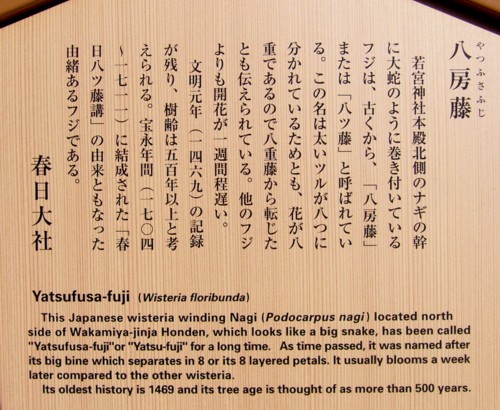 八房藤
やつふさふじ
若宮神社本殿北側のナギの幹
に大蛇のように巻き付いている
フジは、古くから、「八房藤」
または「八ツ藤」と呼ばれてい
る。この名は太いツルが八つに
分かれているためとも、花が八
重であるので八重藤から転じた
とも伝えられている。他のフジ
よりも開花が一週間程遅い。
文明元年（一四六九）の記録
が残り、樹齢は五百年以上と考
えられる。宝永年間（一七〇四
～一七一一）に結成された「春
日八ツ藤講」の由来ともなった
由緒あるフジである。
春日大社
Yatsufusa-fuji (Wisteria floribunda)
This Japanese wisteria winding Nagi (Podocarpus nagi) located north
side of Wakamiya-jinja Honden, which looks like a big snake, has been called
"Yatsufusa-fuji"or "Yatsu-fuji" for a long time. As time passed, it was named after
its big bine which separates in 8 or its 8 layered petals. It usually blooms a week
later compared to the other wisteria.
Its oldest history is 1469 and its tree age is thought of as more than 500 years.